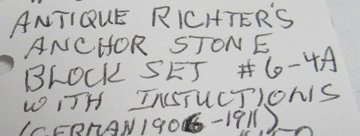 ANTIQUE RICHTER'S
ANCHOR STONE
BLOCK SET #6-4A
WITH INSTUCTIONS
(GERMAN 1906-1911)